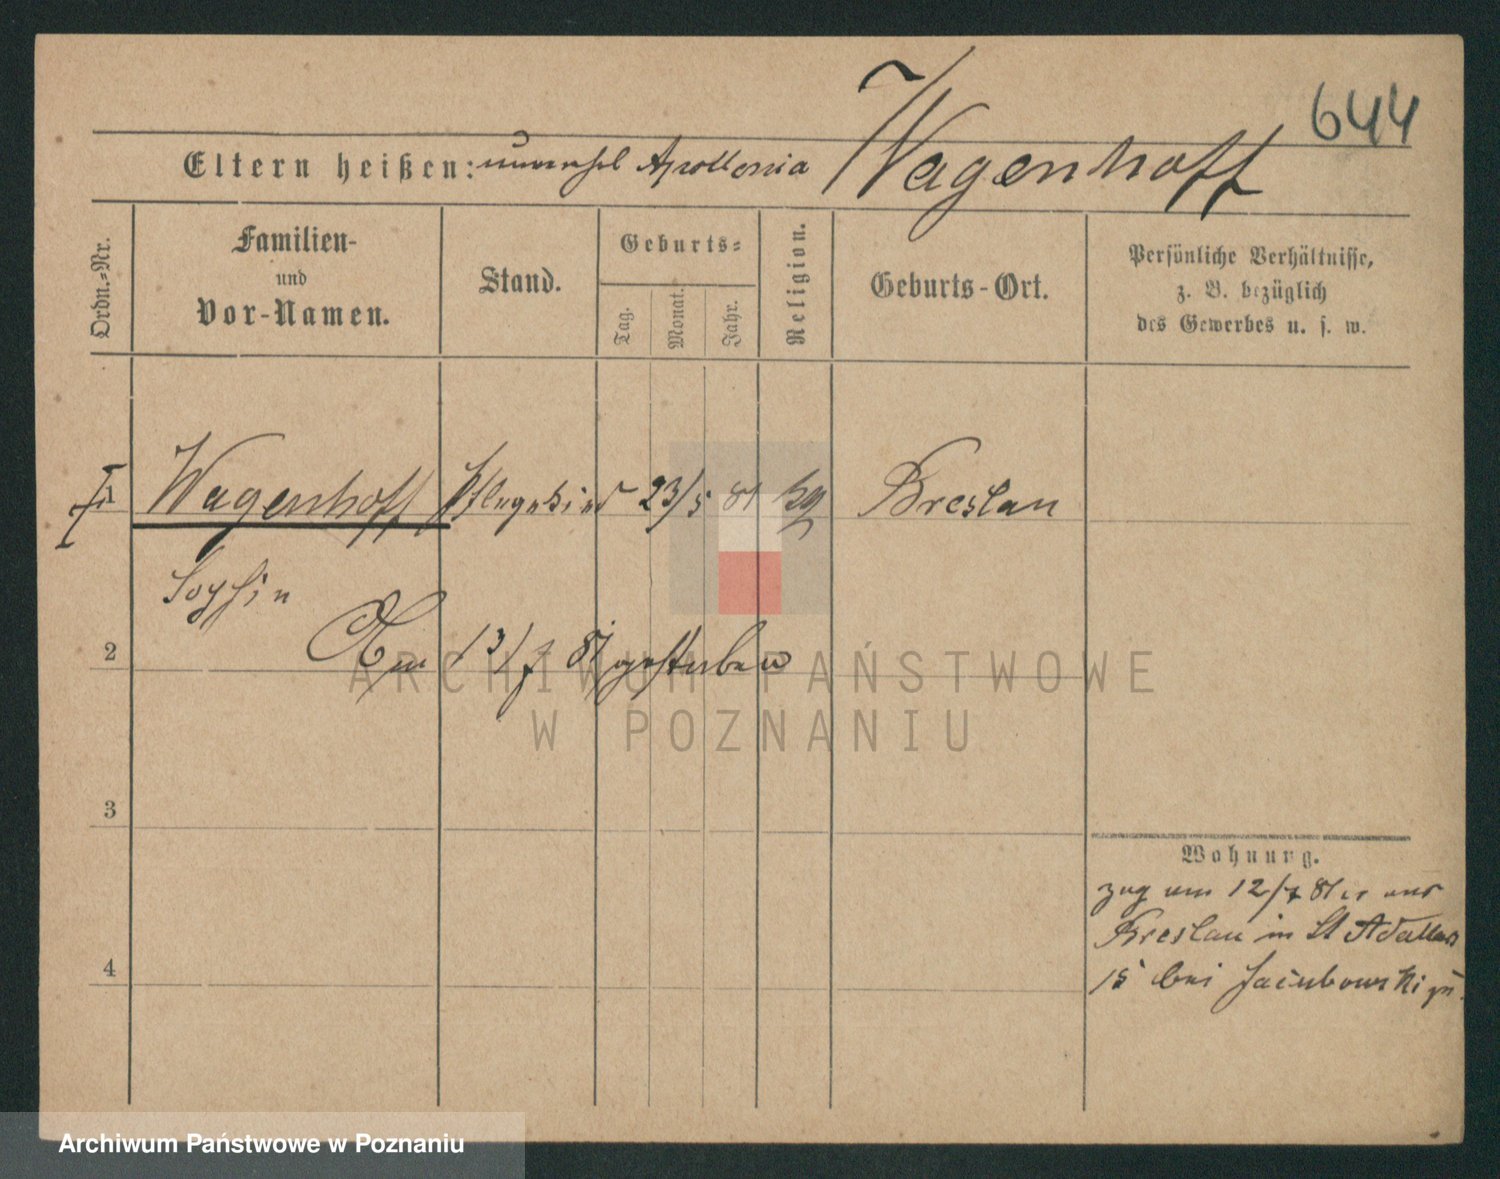 644
Eltern heißen: unverehel Apollonia Wagenhoff
Ordn.-Nr.
Familien-
und
Vor-Namen.
Stand.
Geburts-
Tag.
Monat.
Jahr.
Religion.
Geburts-Ort.
Persönliche Verhältnisse,
z. B. bezüglich
des Gewerbes u. s. w.
1 Wagenhoff Pflegekind 23/5 81 Breslau
Sophie
2 Am 13/7 81 gestorben
ARCHIWUM PAŃSTWOWE
W POZNANIU
3
Wohnung.
zog am 12/7 81 aus
Breslau in St Adalbert
4
15 bei Jacubowski zu.
Archiwum Państwowe w Poznaniu